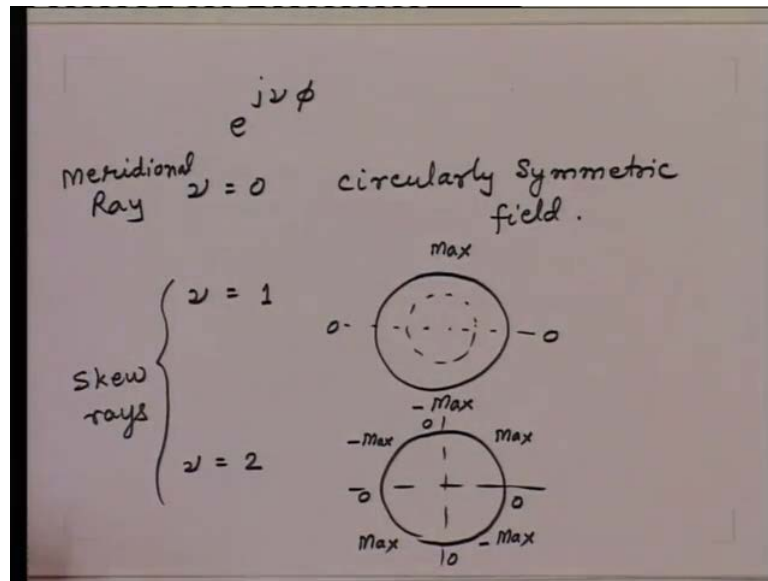 e^{jνφ}
Meridional Ray ν = 0 circularly symmetric field.
Skew rays
ν = 1
Max
0 0
- Max
ν = 2
0
-Max Max
0 0
Max -Max
0